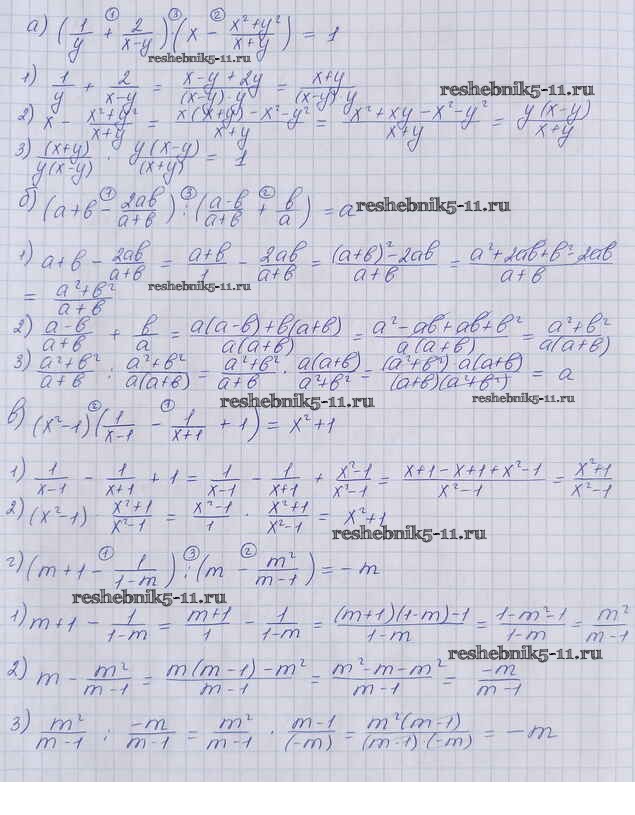 а) (1/y + 2/(x-y)) : (x - (x²+y²)/(x+y)) = 1
① ③ ②
reshebnik5-11.ru
1) 1/y + 2/(x-y) = (x-y+2y)/((x-y)·y) = (x+y)/((x-y)·y)
reshebnik5-11.ru
2) x - (x²+y²)/(x+y) = (x(x+y)-x²-y²)/(x+y) = (x²+xy-x²-y²)/(x+y) = y(x-y)/(x+y)
3) (x+y)/(y(x-y)) · y(x-y)/(x+y) = 1
б) (a+b - 2ab/(a+b)) : ((a-b)/(a+b) + b/a) = a
① ③ ②
reshebnik5-11.ru
1) a+b - 2ab/(a+b) = (a+b)/1 - 2ab/(a+b) = ((a+b)²-2ab)/(a+b) = (a²+2ab+b²-2ab)/(a+b)
= (a²+b²)/(a+b)
reshebnik5-11.ru
2) (a-b)/(a+b) + b/a = (a(a-b)+b(a+b))/(a(a+b)) = (a²-ab+ab+b²)/(a(a+b)) = (a²+b²)/(a(a+b))
3) (a²+b²)/(a+b) : (a²+b²)/(a(a+b)) = (a²+b²)/(a+b) · a(a+b)/(a²+b²) = ((a²+b²)·a(a+b))/((a+b)(a²+b²)) = a
reshebnik5-11.ru
reshebnik5-11.ru
в) (x²-1)(1/(x-1) - 1/(x+1) + 1) = x²+1
② ①
1) 1/(x-1) - 1/(x+1) + 1 = 1/(x-1) - 1/(x+1) + (x²-1)/(x²-1) = (x+1-x+1+x²-1)/(x²-1) = (x²+1)/(x²-1)
2) (x²-1) · (x²+1)/(x²-1) = (x²-1)/1 · (x²+1)/(x²-1) = x²+1
reshebnik5-11.ru
г) (m+1 - 1/(1-m)) : (m - m²/(m-1)) = -m
① ③ ②
reshebnik5-11.ru
1) m+1 - 1/(1-m) = (m+1)/1 - 1/(1-m) = ((m+1)(1-m)-1)/(1-m) = (1-m²-1)/(1-m) = m²/(m-1)
reshebnik5-11.ru
2) m - m²/(m-1) = (m(m-1)-m²)/(m-1) = (m²-m-m²)/(m-1) = -m/(m-1)
3) m²/(m-1) : -m/(m-1) = m²/(m-1) · (m-1)/(-m) = m²(m-1)/((m-1)·(-m)) = -m